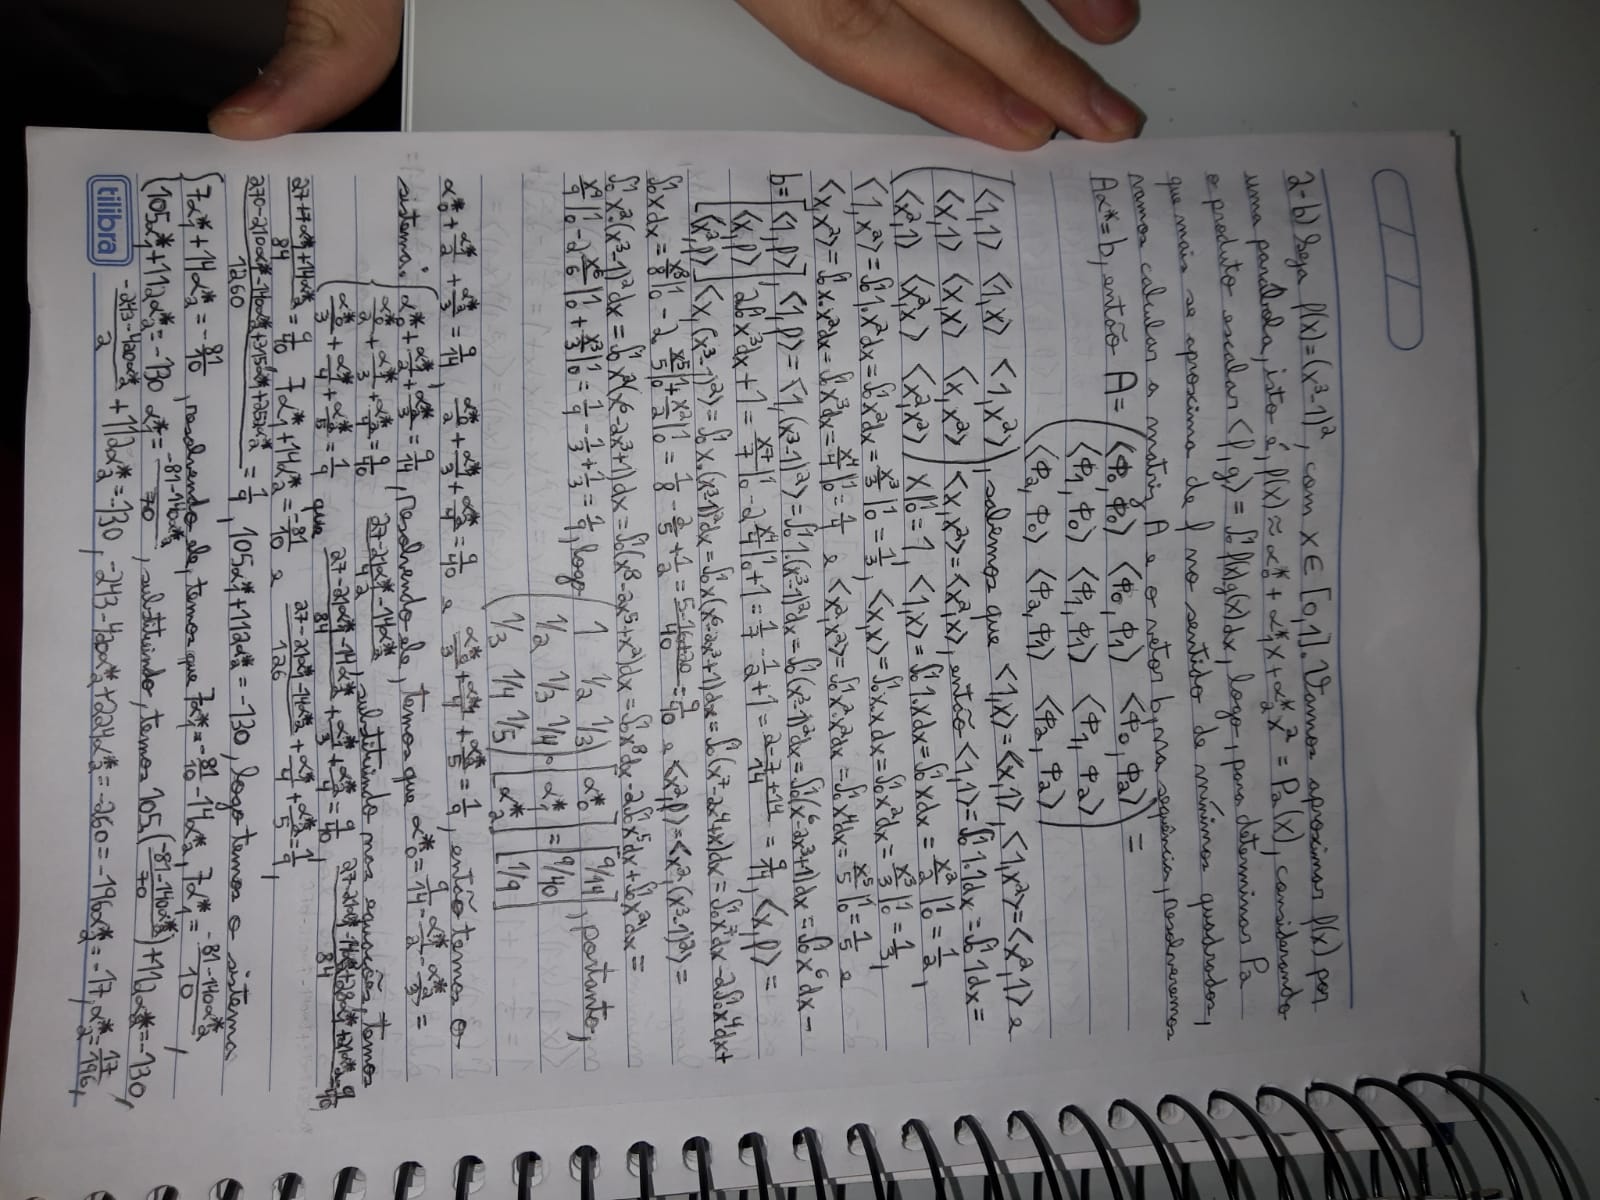 2-b) Seja f(x)=(x³-1)², com x ∈ [0,1]. Vamos aproximar f(x) por
uma parábola, isto é, f(x) ≈ α₀* + α₁*x + α₂*x² = P₂(x), considerando
o produto escalar <f,g> = ∫₀¹ f(x)g(x)dx, logo, para determinar P₂
que mais se aproxima de f no sentido de mínimos quadrados,
vamos calcular a matriz A e o vetor b, na sequência, resolveremos
Aα*=b, então A= (<φ₀,φ₀> <φ₀,φ₁> <φ₀,φ₂>) =
<φ₁,φ₀> <φ₁,φ₁> <φ₁,φ₂>
<φ₂,φ₀> <φ₂,φ₁> <φ₂,φ₂>
(<1,1> <1,x> <1,x²>), sabemos que <1,x>=<x,1>, <1,x²>=<x²,1> e
<x,1> <x,x> <x,x²> <x,x²>=<x²,x>, então <1,1>=∫₀¹1·1dx=∫₀¹1dx=
<x²,1> <x²,x> <x²,x²> x|₀¹=1, <1,x>=∫₀¹1·xdx=∫₀¹xdx= x²/2|₀¹= 1/2,
<1,x²>=∫₀¹1·x²dx=∫₀¹x²dx= x³/3|₀¹= 1/3, <x,x>=∫₀¹x·xdx=∫₀¹x²dx= x³/3|₀¹= 1/3,
<x,x²>=∫₀¹x·x²dx=∫₀¹x³dx= x⁴/4|₀¹= 1/4 e <x²,x²>=∫₀¹x²·x²dx=∫₀¹x⁴dx= x⁵/5|₀¹= 1/5 e
b= [<1,f>], <1,f>=<1,(x³-1)²>=∫₀¹1·(x³-1)²dx=∫₀¹(x³-1)²dx=∫₀¹(x⁶-2x³+1)dx=∫₀¹x⁶dx-
<x,f> 2∫₀¹x³dx+1= x⁷/7|₀¹-2 x⁴/4|₀¹+1= 1/7 - 1/2 +1= 2-7+14/14 = 9/14, <x,f>=
<x²,f> <x,(x³-1)²>=∫₀¹x·(x³-1)²dx=∫₀¹x(x⁶-2x³+1)dx=∫₀¹(x⁷-2x⁴+x)dx=∫₀¹x⁷dx-2∫₀¹x⁴dx+
∫₀¹xdx= x⁸/8|₀¹-2 x⁵/5|₀¹+ x²/2|₀¹= 1/8 - 2/5 + 1/2= 5-16+20/40= 9/40 e <x²,f>=<x²,(x³-1)²>=
∫₀¹x²(x³-1)²dx=∫₀¹x²(x⁶-2x³+1)dx=∫₀¹(x⁸-2x⁵+x²)dx=∫₀¹x⁸dx-2∫₀¹x⁵dx+∫₀¹x²dx=
x⁹/9|₀¹-2 x⁶/6|₀¹+ x³/3|₀¹= 1/9 - 1/3 + 1/3 = 1/9, logo (1 1/2 1/3) [α₀*] [9/14], portanto,
1/2 1/3 1/4 · α₁* = 9/40
1/3 1/4 1/5 α₂* 1/9
α₀*+ α₁*/2 + α₂*/3 = 9/14, α₀*/2 + α₁*/3 + α₂*/4 = 9/40 e α₀*/3 + α₁*/4 + α₂*/5 = 1/9, então temos o
sistema: {α₀*+ α₁*/2 + α₂*/3 = 9/14, resolvendo ele, temos que α₀*= 9/14 - α₁*/2 - α₂*/3 =
α₀*/2 + α₁*/3 + α₂*/4 = 9/40 27-21α₁*-14α₂*/42, substituindo nas equações, temos
α₀*/3 + α₁*/4 + α₂*/5 = 1/9 que 27-21α₁*-14α₂*/84 + α₁*/3 + α₂*/4 = 9/40, 27-21α₁*-14α₂*+28α₁*+21α₂*/84 = 9/40,
27+7α₁*+14α₂*/84 = 9/40 7α₁*+14α₂*= -81/10 e 27-21α₁*-14α₂*/126 + α₁*/4 + α₂*/5 = 1/9,
270-210α₁*-140α₂*+315α₁*+252α₂*/1260 = 1/9, 105α₁*+112α₂*=-130, logo temos o sistema
{7α₁*+14α₂*= -81/10, resolvendo ele, temos que 7α₁*= -81/10 -14α₂*, 7α₁*= -81-140α₂*/10,
105α₁*+112α₂*=-130 α₁*= -81-140α₂*/70, substituindo, temos 105(-81-140α₂*/70)+112α₂*=-130,
-243-420α₂*/2 + 112α₂*=-130, -243-420α₂*+224α₂*=-260=-196α₂*=-17, α₂*= 17/196,
tilibra